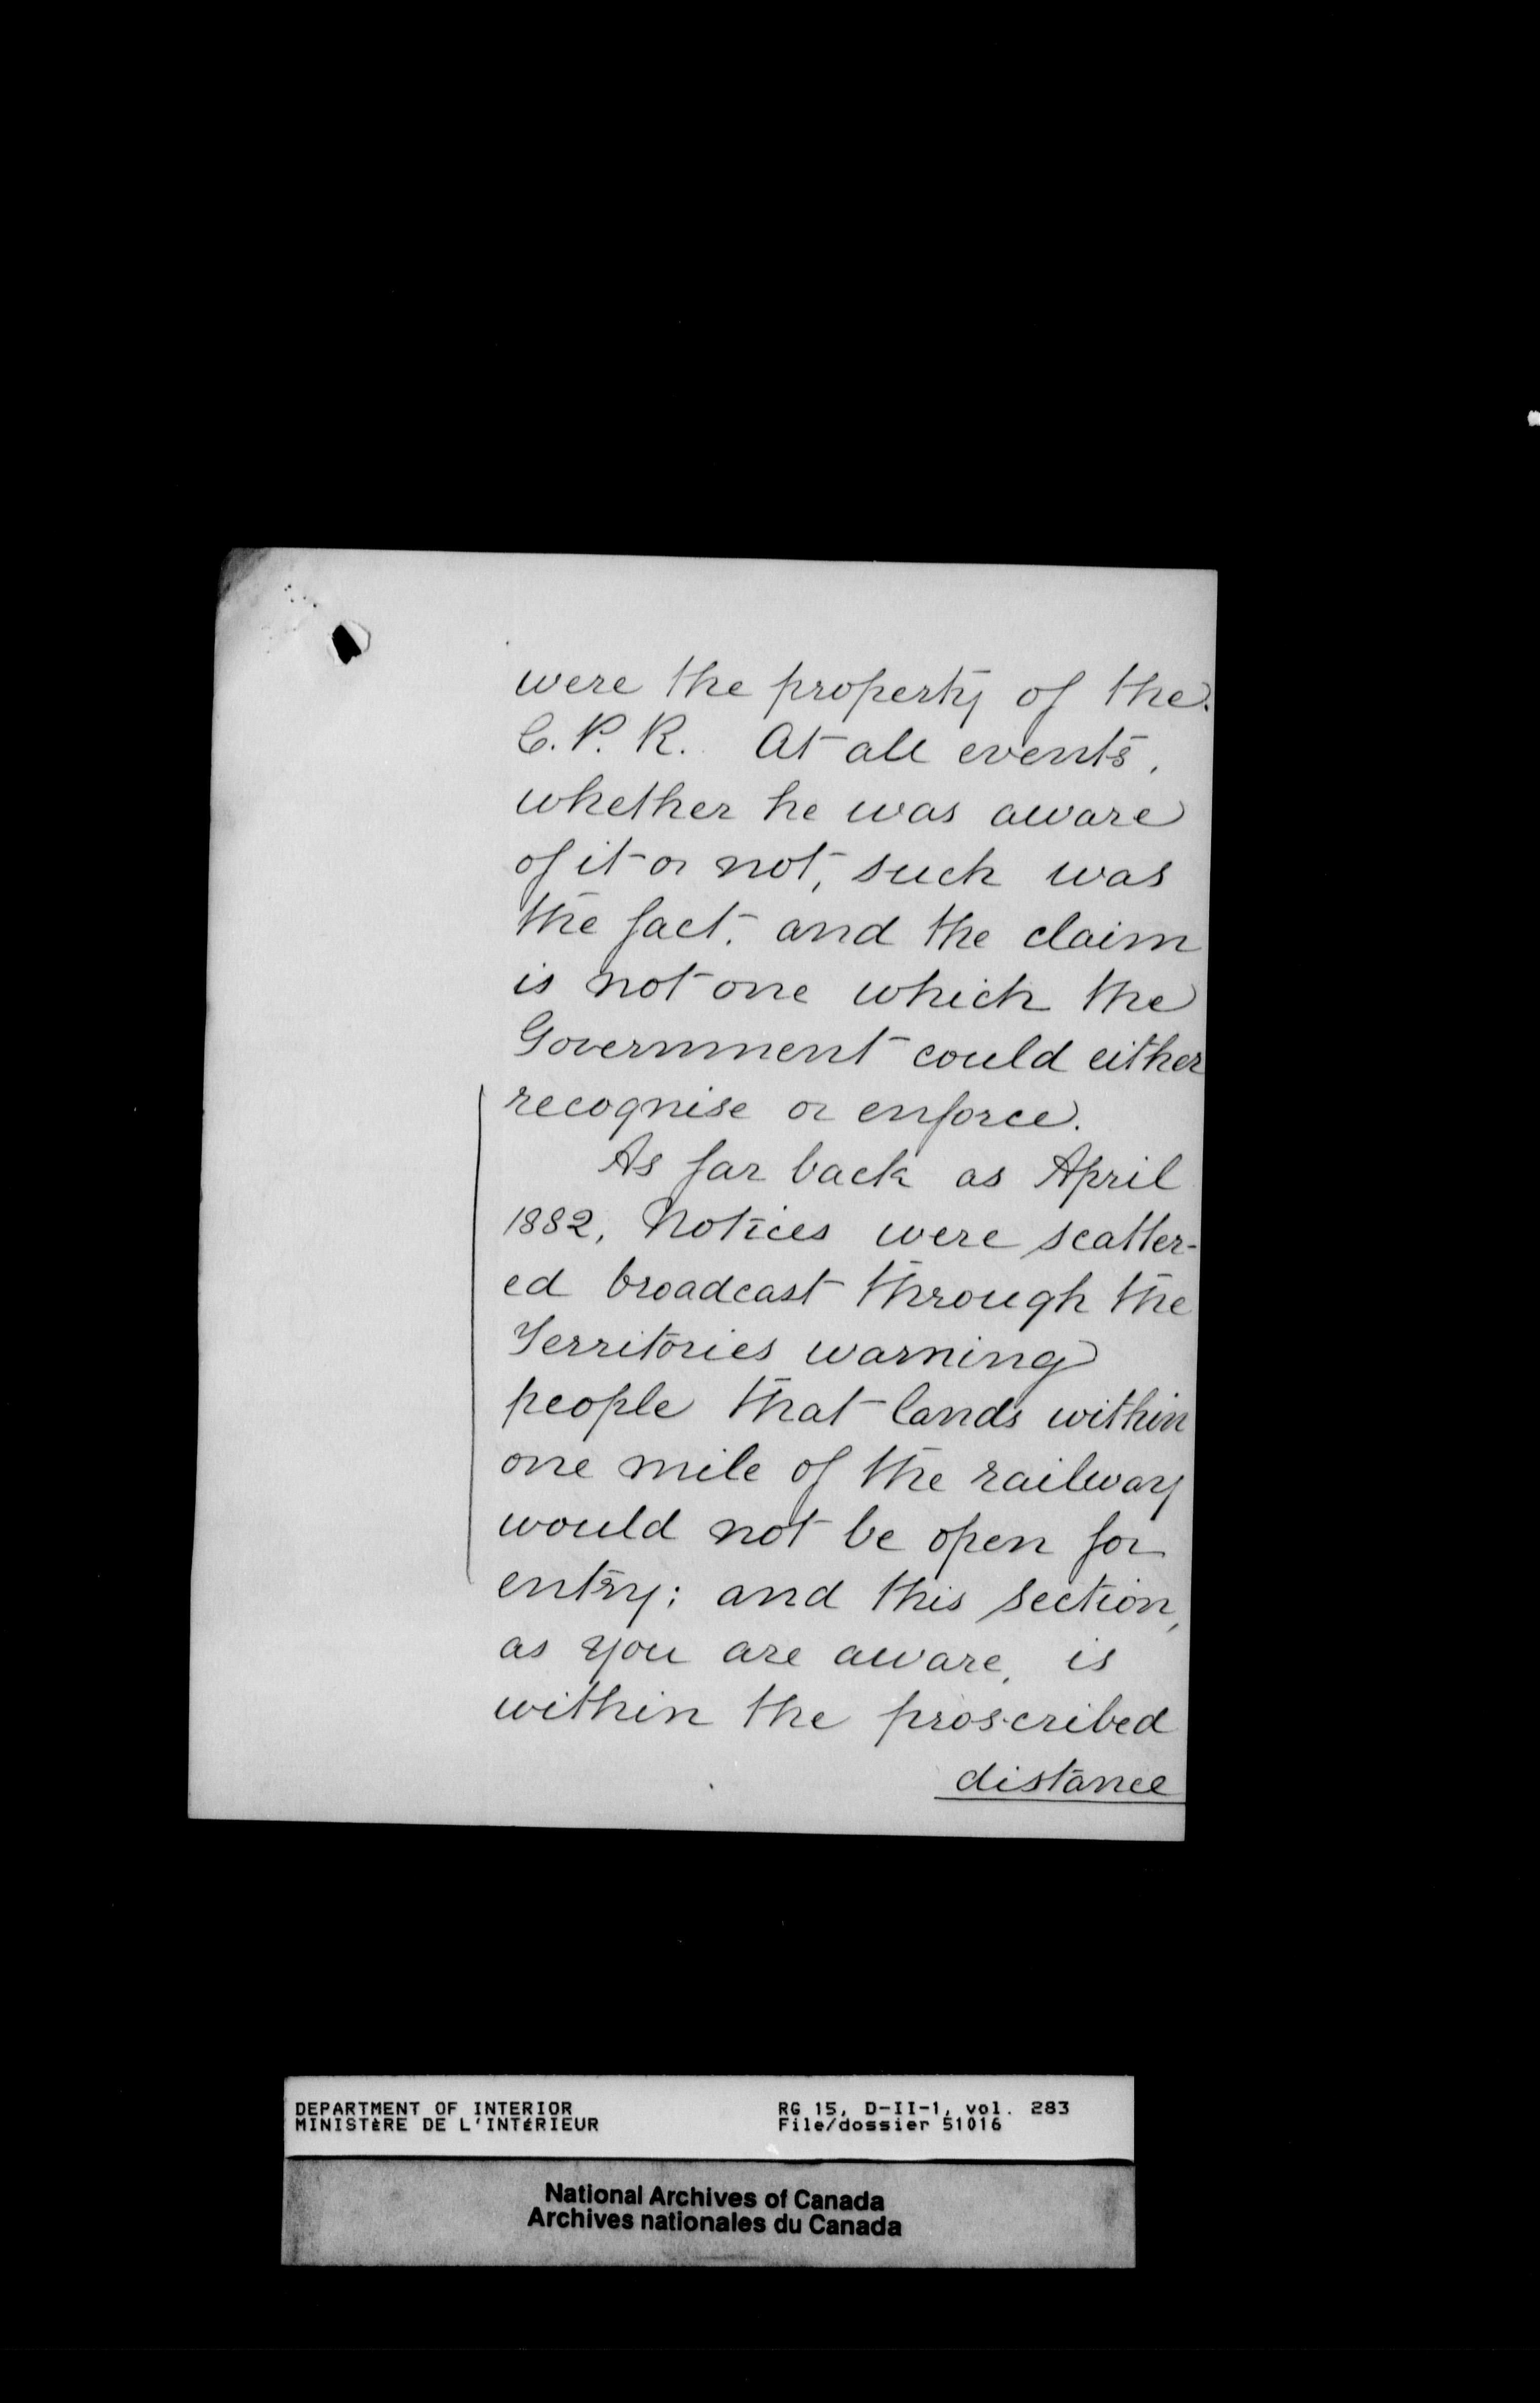 were the property of the
C. P. R. At all events,
whether he was aware
of it or not, such was
the fact, and the claim
is not one which the
Government could either
recognise or enforce.
As far back as April
1882, Notices were scatter-
ed broadcast through the
Territories warning
people that lands within
one mile of the railway
would not be open for
entry; and this section,
as you are aware, is
within the proscribed
distance
DEPARTMENT OF INTERIOR RG 15, D-II-1, vol. 283
MINISTÈRE DE L'INTÉRIEUR File/dossier 51016
National Archives of Canada
Archives nationales du Canada